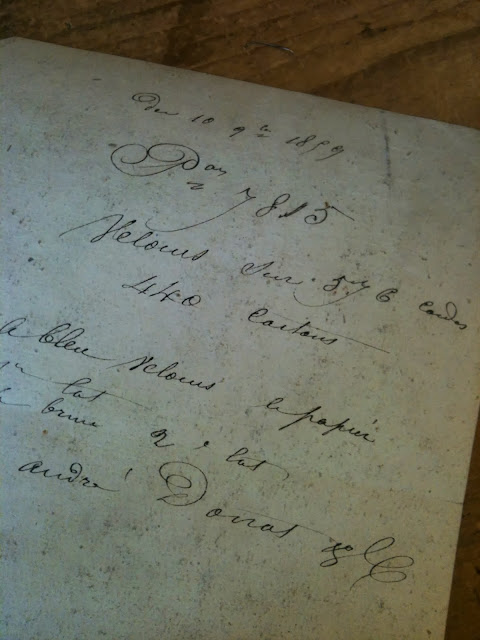 du 10 9bre 1859
Pon 7815
Velours sur 576 cordes
440 cartons
bleu velours le papier
lat
brun 2e lat
andré Donat & C